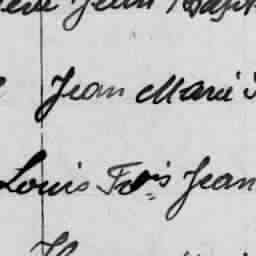 Jean Bapt
Jean Marie
Louis Fçois Jean